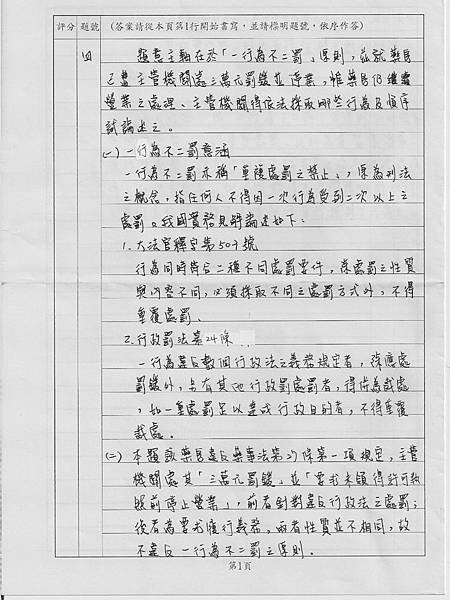 評分 題號 (答案請從本頁第1行開始書寫，並請標明題號，依序作答)
四 題意主軸在於「一行為不二罰」原則，並就藥局
已遭主管機關處三萬元罰鍰並停業，惟藥局仍繼續
營業之處理，主管機關得依法採取哪些行為及順序
試論述之。
(一)一行為不二罰意涵
一行為不二罰亦稱「重複處罰之禁止」，原為刑法
之概念，指任何人不得因一次行為受到二次以上之
處罰。我國實務見解論述如下：
1.大法官釋字第503號
行為同時符合二種不同處罰要件，除處罰之性質
與內容不同，必須採取不同之處罰方式外，不得
重覆處罰。
2.行政罰法第24條
一行為違反數個行政法之義務規定者，除應處
罰鍰外，另有其他行政罰處罰者，得併為裁處
，如一重處罰足以達成行政目的者，不得重覆
裁處。
(二)本題該藥局違反藥事法第27條第一項規定，主管
機關處其「三萬元罰鍰」並「要求未領得許可執
照前停止營業」，前者針對違反行政法之處罰；
後者為要求履行義務，兩者性質並不相同，故
不違反一行為不二罰之原則。
第1頁